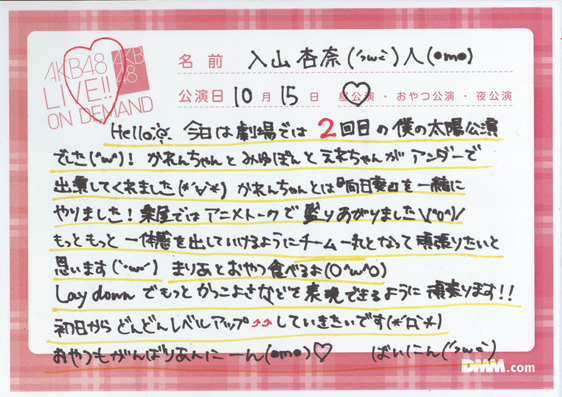 AKB48
LIVE!!
ON DEMAND
AKB
48
名前 入山杏奈('ɔwc')人(●m●)
公演日 10月15日 昼公演・おやつ公演・夜公演
Hello☼ 今日は劇場では2回目の僕の太陽公演
でした(^ω^)! かれんちゃんとみゆぽんとえれちゃんがアンダーで
出演してくれました(*'∀'*) かれんちゃんとは『向日葵』を一緒に
やりました!楽屋ではアニメトークで盛りあがりました\(^o^)/
もっともっと一体感を出していけるようにチーム一丸となって頑張りたいと
思います('ω') まりあとおやつ食べるよ(O^ω^O)
Lay downでもっとかっこよさなどを表現できるように頑張ります!!
初日からどんどんレベルアップ⤴⤴していきたいです(*'ロ'*)
おやつもがんばりあんにーん(●m●)♡ ばいにん('ɔwc')
DMM.com